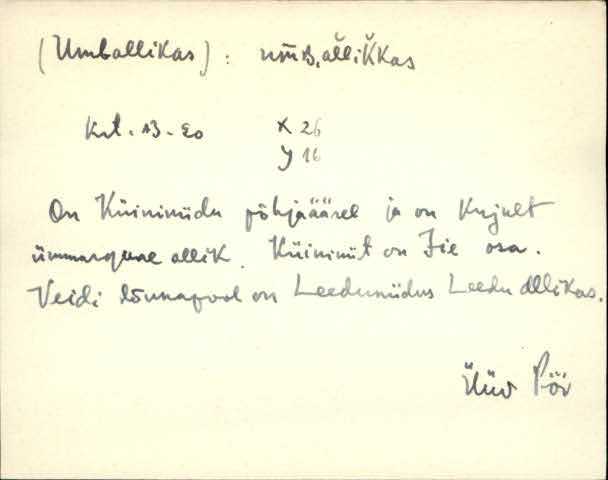 (Umballikas): um̄B.ălliK̆kas
Krt. 13-20 X 26
Y 16
On Küininiidu põhjaäärel ja on kujult
ümmargune allik. Küininiit on Iie osa.
Veidi lõunapool on Leeduniidus Leedu allikas.